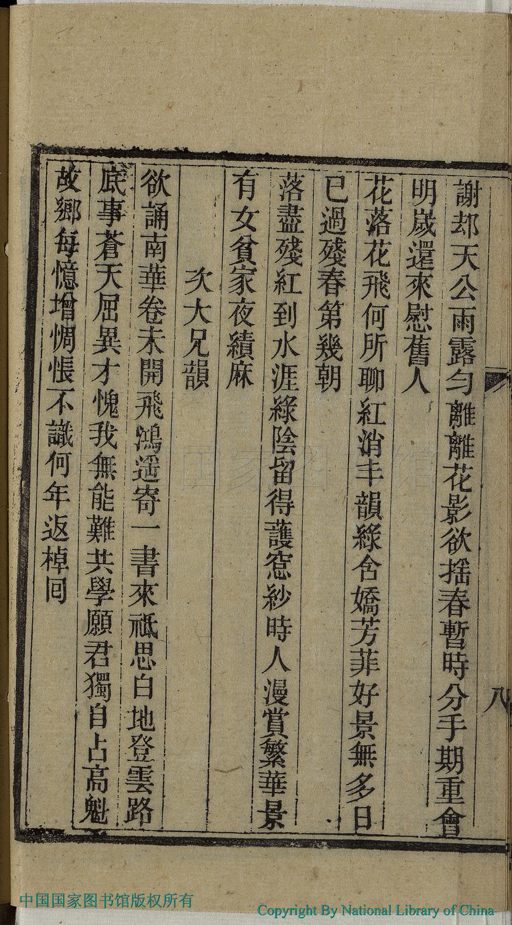 謝却天公雨露勻離離花影欲揺春暫時分手期重會
明嵗還來慰舊人
花落花飛何所聊紅消丰韻綠含嬌芳菲好景無多日
已過殘春第幾朝
落盡殘紅到水涯綠陰留得護窓紗時人漫賞繁華景
有女貧家夜績麻
次大兄韻
欲誦南華卷未開飛鴻遥寄一書來祗思白地登雲路
底事蒼天屈異才愧我無能難共學願君獨自占高魁
故鄉每憶增惆悵不識何年返棹囘
八
中国国家图书馆版权所有
Copyright By National Library of China